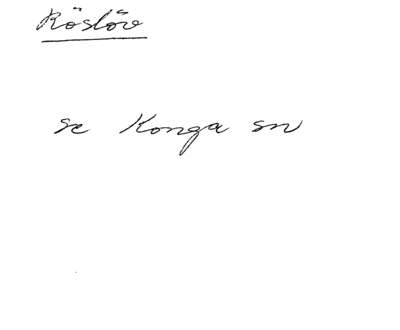 Röslöv
se Konga sn